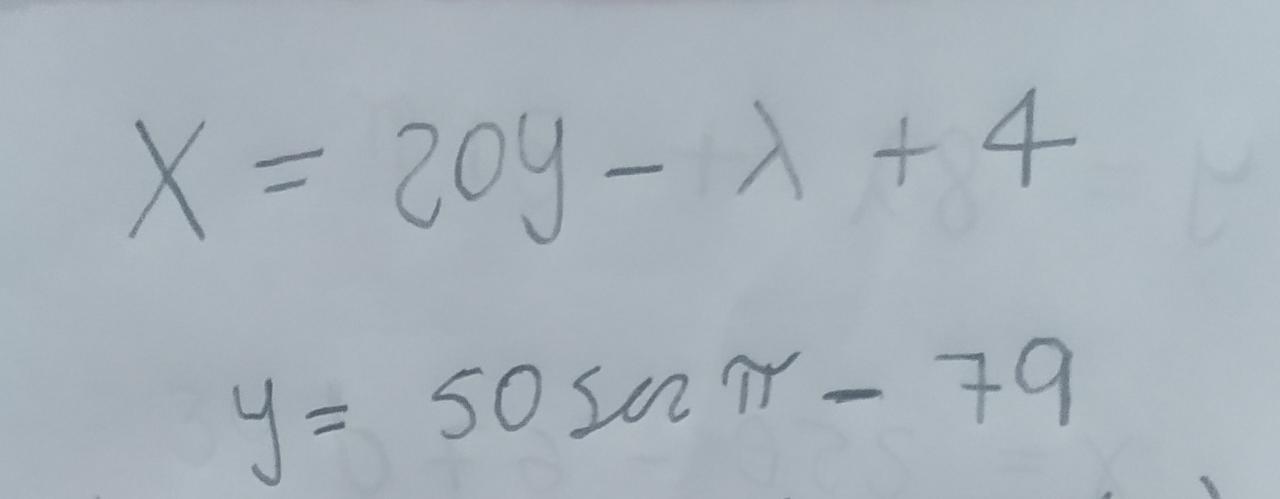 X = 20y - λ + 4
y = 50 sin π - 79